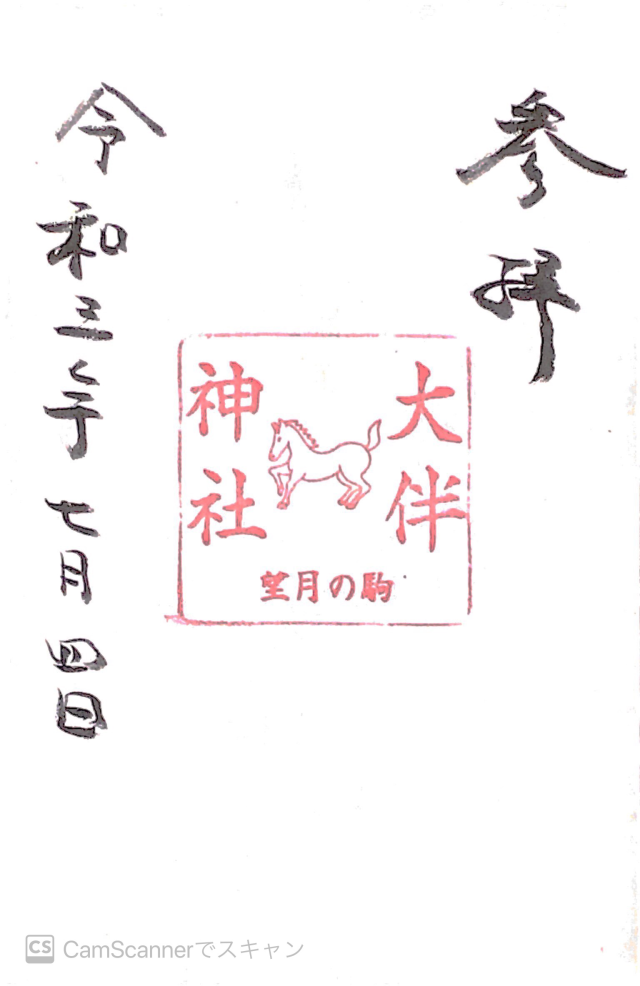 参拝
大伴
神社
望月の駒
令和三年七月四日
CS CamScannerでスキャン